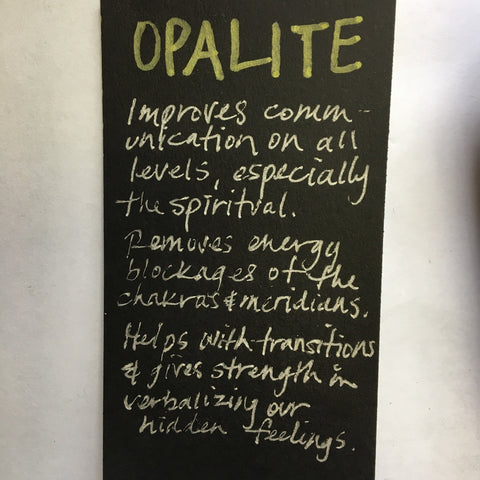 OPALITE
Improves comm-
unication on all
levels, especially
the spiritual.
Removes energy
blockages of the
chakras & meridians.
Helps with transitions
& gives strength in
verbalizing our
hidden feelings.